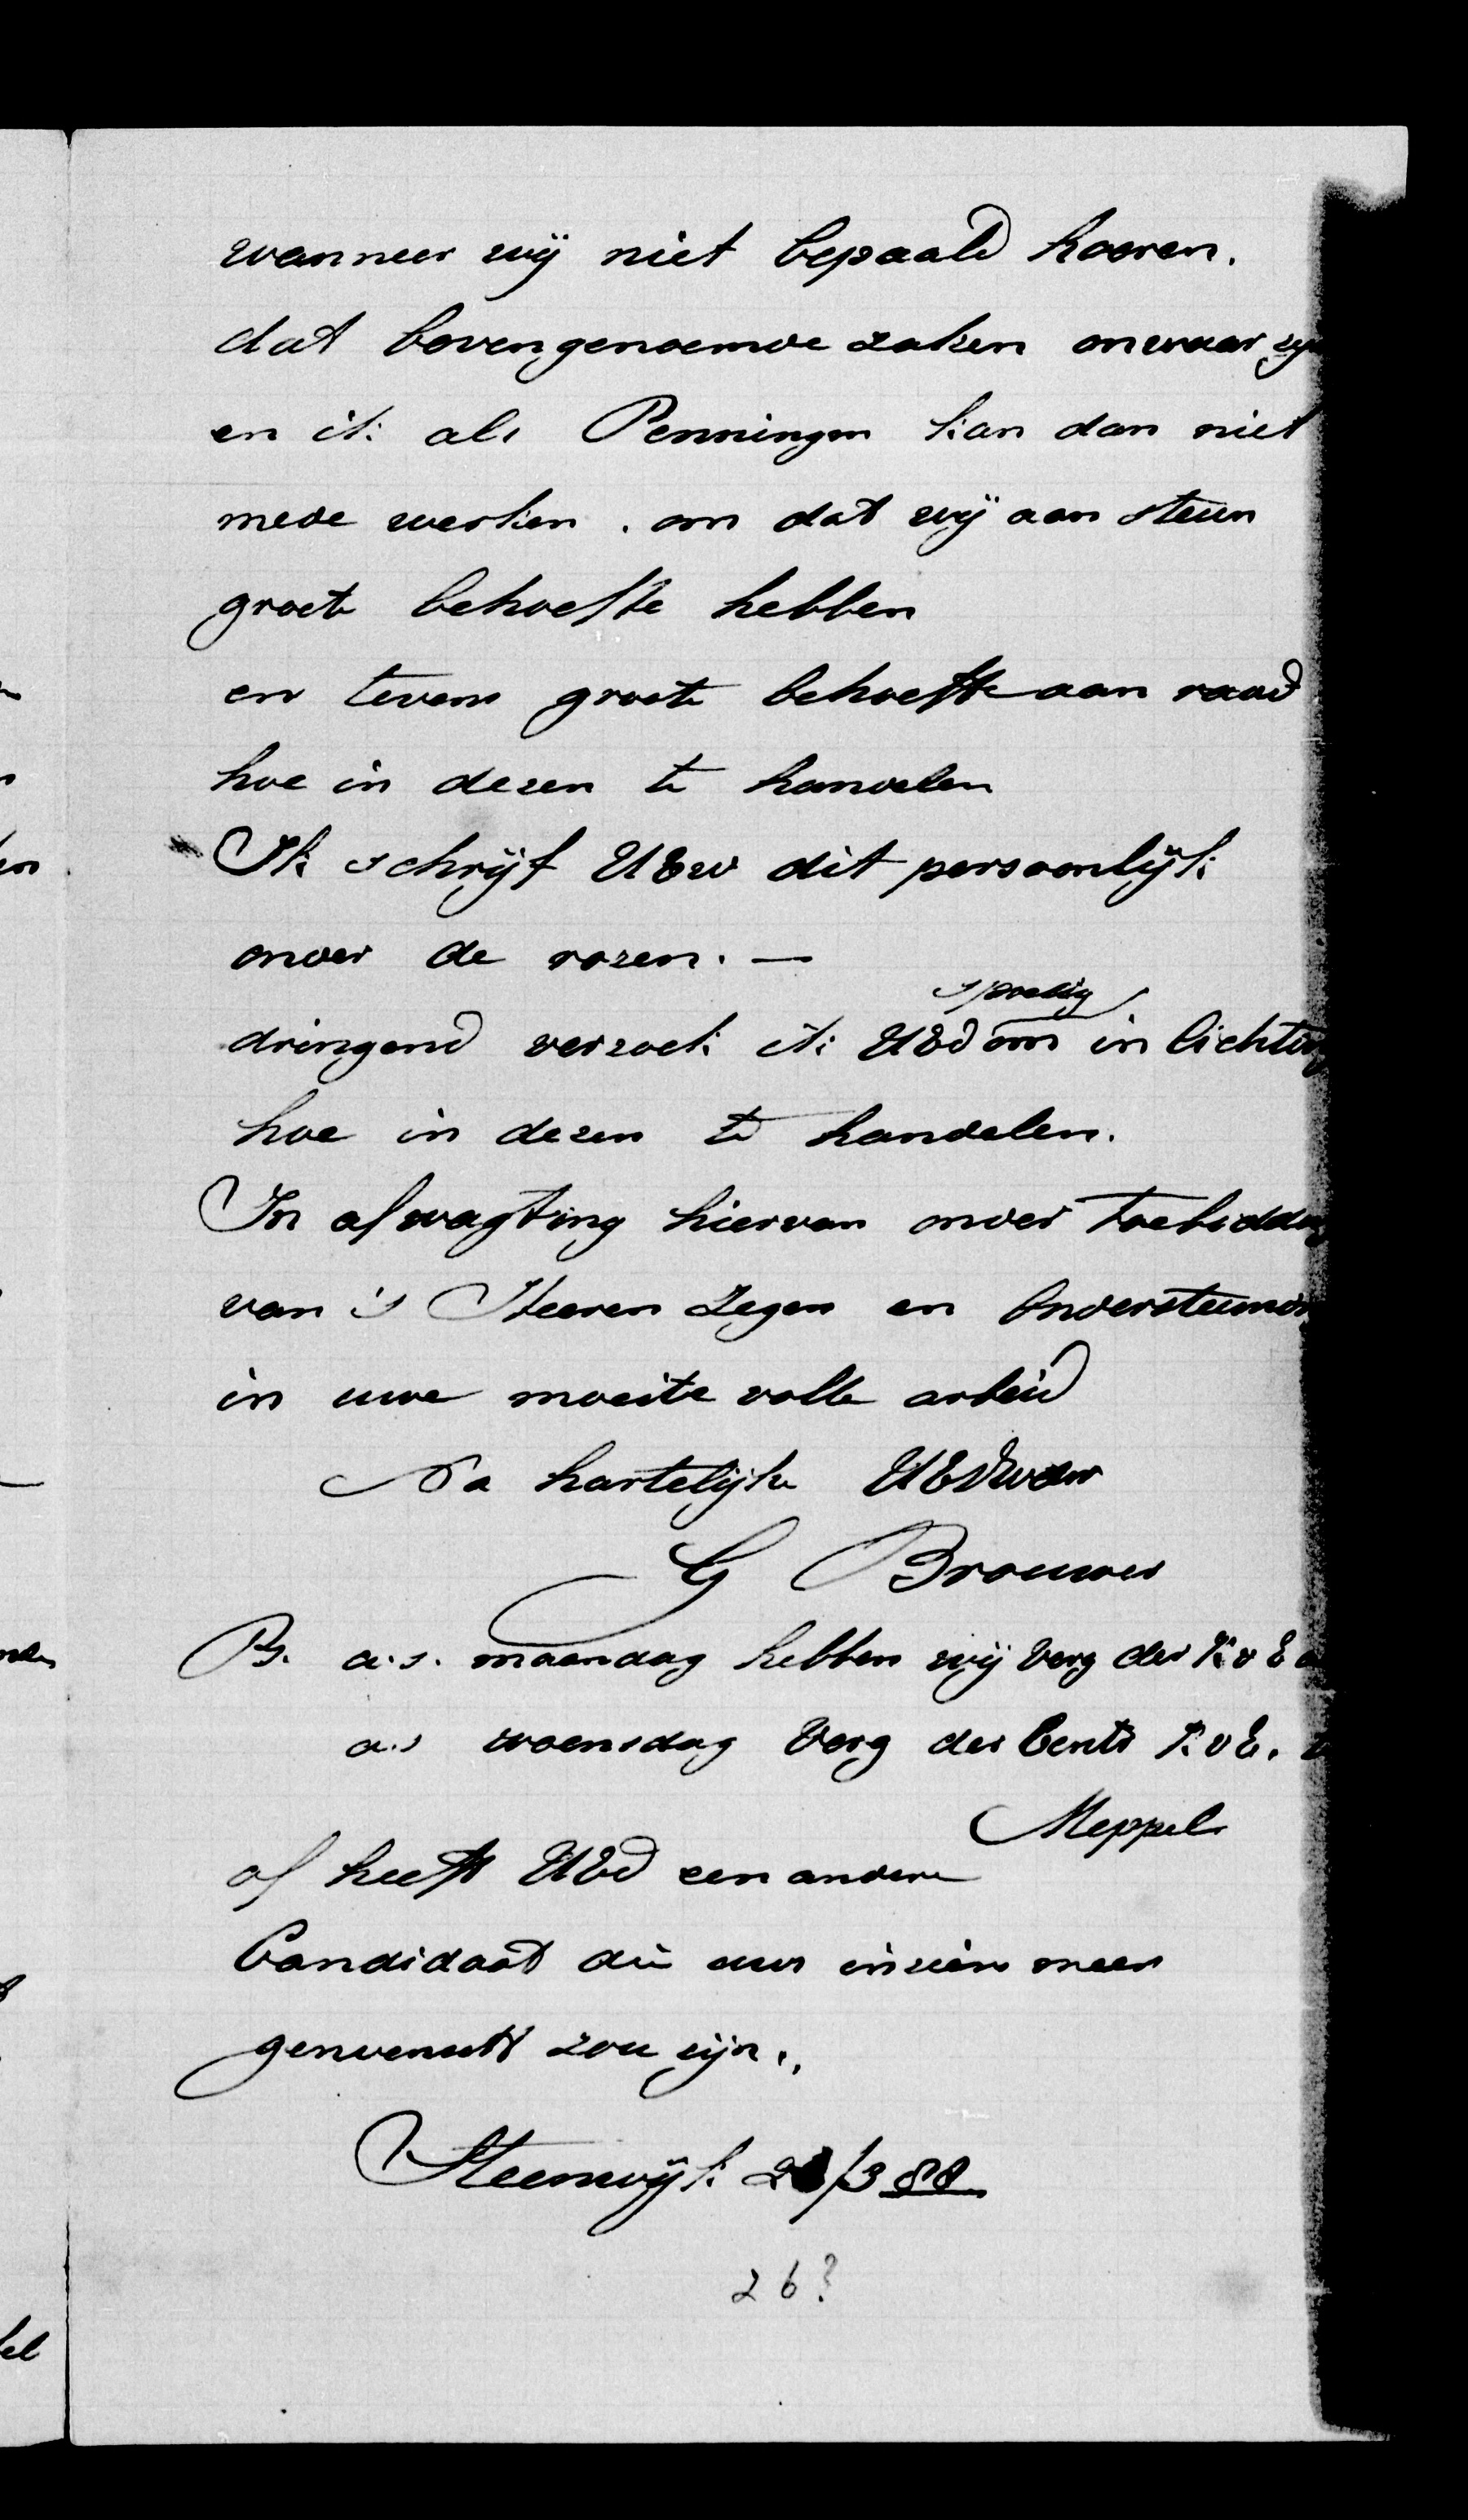 wanneer wij niet bepaald hooren.
dat bovengenoemde zaken onwaar zijn
en ik als Penningm kan dan niet
mede werken. om dat wij aan steun
groote behoefte hebben
en tevens groote behoefte aan raad
hoe in dezen te handelen
Ik schrijf UEw dit persoonlijk
onder de rozen. —
spoedig
dringend verzoek ik UEd om in lichting
hoe in dezen te handelen.
In afwagting hiervan onder toebidding
van 's Heeren Zegen en Ondersteuning
in uwe moeite volle arbeid
Na hartelijke UEDwdw
G Brouwer
Ps. a.s. maandag hebben wij Verg der K v E
a.s woensdag Verg der Centr K v E.
Meppel
of heeft UEd een andere
Candidaat die uws inziens meer
genwenscht zou zijn.,
Steenwijk /3 88
26?